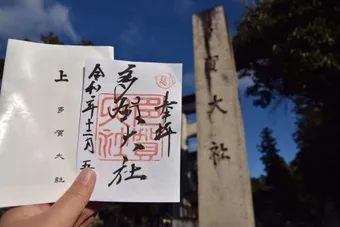 奉拝
多賀大社
多賀大社
令和元年十二月五
上
多賀大社
賀大社